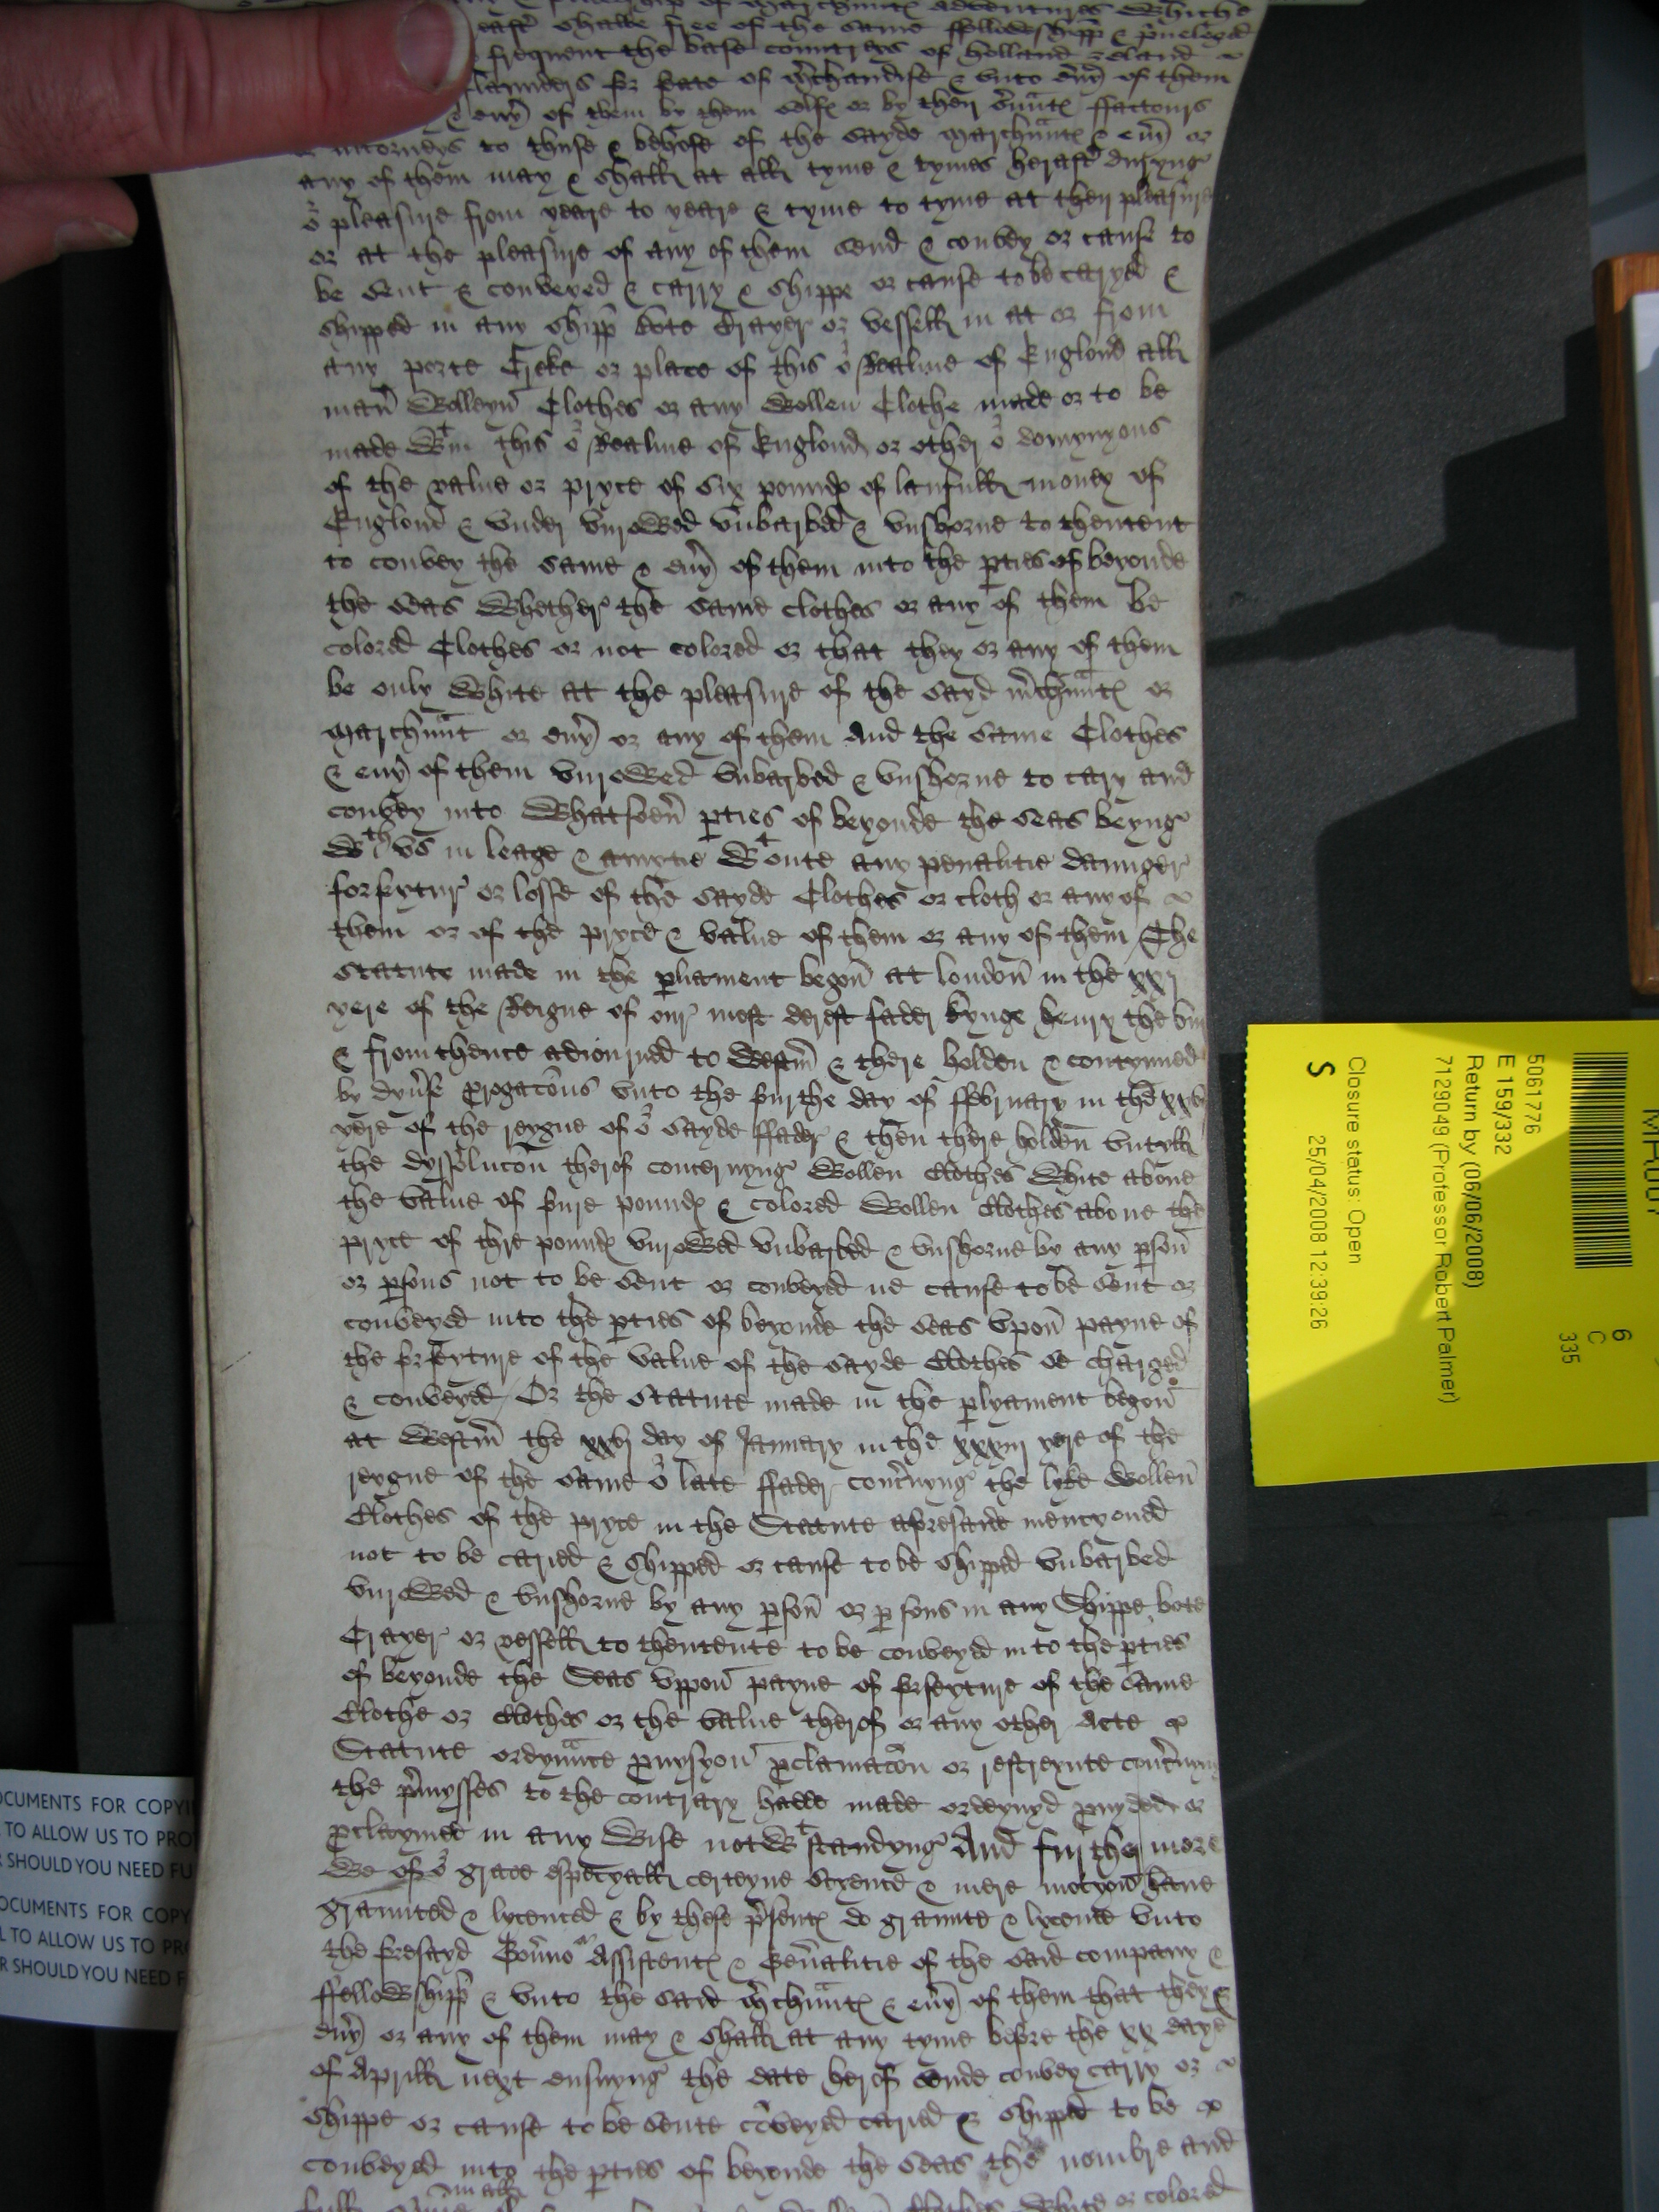 of marchuntꝭ adventurers Whiche
shalbe free of the same ffellowshipp & pͥuileged
frequent the base countreys of Holland zeland
fflaunders for sale of mͬchandise & vnto eūy of them
& eūy of them by them selfꝭ or by their s̄untꝭ ffactours
attorneys to thuse & behofe of the sayde marchuntꝭ & eūy or
any of them may & shall at all tyme & tymes heraft̄ duryng
oͬ pleasure from yeare to yeare & tyme to tyme at their pleasure
or at the pleasure of any of them send & convey or cause to
be sent & conveyed & carry & shippe or cause to be caryed &
shipped in any shipp bote Crayer or vessell in at or from
any porte Creke or place of this oͬ Realme of Englond all
man̄ Wolleyn Clothes or any Wollen Clothe made or to be
made Wᵗin this oͬ Realme of Englond or other oͬ domynyons
of the value or pryce of six poundꝭ of laufull money of
Englond & vnder vnroWed vnbarbed & vnshorne to thentent
to convey the same & eūy of them into the ꝑties of beyonde
the seas Whether the same clothes or any of them be
colored Clothes or not colored or that they or any of them
be only White at the pleasure of the sayd mͬchuntꝭ or
marchunt or eūy or any of them And the same Clothes
& eūy of them vnroWed vnbarbed & vnshorne to cary and
convey into Whatsoeū ꝑties of beyonde the seas beyng
Wᵗʰ vs in leage & amytie Wᵗoute any penalitie daunger
forfeytur or losse of the sayde Clothes or cloth or any of
them or of the pryce & value of them or any of them / The
statute made in the ꝑliament begon̄ at london̄ in the xxj
yere of the Reigne of our most derest fader kynge henry the viij
& from thence adiorned to Westm̄ & there holden & contynued
by dyūse ꝓrogacōns vnto the day of ffebruary in the
yere of the reygne of oͬ sayde ffader & then there holden vntyll
the dyssolucōn therof concernyng Wollen Clothes White aboue
the value of poundꝭ & colored Wollen Clothes aboue the
pryce of thre poundꝭ vnroWed vnbarbed & vnshorne by any ꝑson̄
or ꝑsons not to be sent or conveyed ne cause to be sent or
conveyed into the ꝑties of beyonde the seas vpon̄ payne of
the forfeyture of the value of the sayde Clothes so charged
& conveyed / Or the statute made in the ꝑlyament begon̄
at Westm̄ the xxvj day of January in the yere of the
reygne of the same oͬ late ffader conc̄nyng the lyke Wollen̄
Clothes of the pryce in the Statute aforesaide mencyoned
not to be caried & shipped or cause to be shipped vnbarbed
vnroWed & vnshorne by any ꝑson̄ or ꝑsons in any Shippe bote
Crayer or vessell to thentente to be conveyed in to the ꝑties
of beyonde the Seas vppon̄ payne of forfeyture of the same
Clothe or Clothes or the value therof or any other Acte
Statute ordynnce ꝓvysyon̄ ꝓclamacōn or restreynte conc̄nyng
the p̄mysses to the contrary hadde made ordeynyd ꝓvyded or
ꝓclaymed in any Wise notWᵗstandyng And further more
We of oͬ grace especyall certeyne scyence & mere mocyon haue
graunted & lycenced & by these p̄sentꝭ do graunte & lycence vnto
the foresayd Goūnoͬ Assistentꝭ & Gen̄alitie of the said company &
ffelloWshipp & vnto the said mͬchuntꝭ & eūy of them that they &
eūy or any of them may & shall at any tyme before the xx daye
of Aprill next ensuyng the date herof sende convey carry or
shippe or cause to be sente cōveyed caried & shipped to be
conveyed into the ꝑties of beyonde the seas the nombre and
Clothes White or colored
5061776
E 159/332
Return by (06/06/2008)
7129049 (Professor Robert Palmer)
Closure status: Open
S 25/04/2008 12:39:26
6
C
335
OCUMENTS FOR COPYI
TO ALLOW US TO PRO
R SHOULD YOU NEED FU
OCUMENTS FOR COPY
L TO ALLOW US TO PR
R SHOULD YOU NEED F